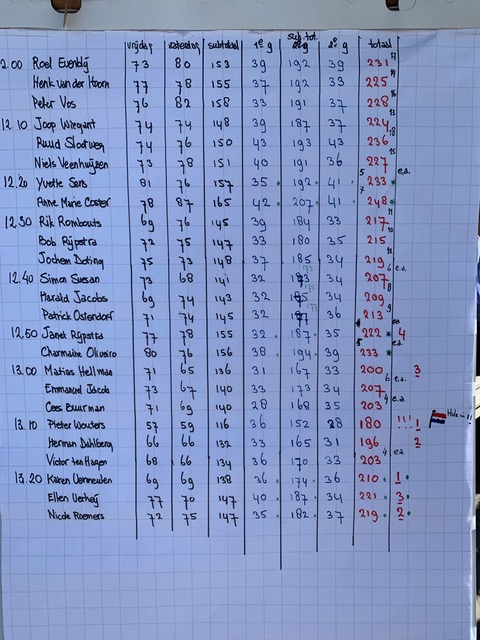 vrijdag zaterdag subtotaal 1e g sub.tot. 2e g totaal
12.00 Roel Evenblij 73 80 153 39 192 39 231
Henk van der Hoorn 77 78 155 37 192 33 225
Peter Vos 76 82 158 33 191 37 228
12.10 Joop Wiegant 74 74 148 39 187 37 224
Ruud Slootweg 74 76 150 43 193 43 236
Niels Veenhuijzen 73 78 151 40 191 36 227
12.20 Yvette Sens 81 76 157 35 192 41 233 e.a.
Anne Marie Coster 78 87 165 42 207 41 248
12.30 Rik Rombouts 69 76 145 39 184 33 217
Bob Rijpstra 72 75 147 33 180 35 215
Jochem Doting 75 73 148 37 185 34 219
12.40 Simon Suesan 73 68 141 32 173 34 207 e.a.
Harald Jacobs 69 74 143 32 175 34 209
Patrick Ostendorf 71 74 145 32 177 36 213
12.50 Janet Rijpstra 77 78 155 32 187 35 222 4
Charmaine Oliveiro 80 76 156 38 194 39 233 e.a.
13.00 Matias Hellman 71 65 136 31 167 33 200 3
Emmanuel Jacob 73 67 140 33 173 34 207 e.a.
Cees Buurman 71 69 140 28 168 35 203 e.a.
13.10 Pieter Wouters 57 59 116 36 152 28 180 !!! 1 Hole in 1!!
Herman Dahlberg 66 66 132 33 165 31 196 2
Victor ten Hagen 68 66 134 36 170 33 203 e.a.
13.20 Karen Vermeulen 69 69 138 36 174 36 210 1
Ellen Verheij 77 70 147 40 187 34 221 3
Nicole Roemers 72 75 147 35 182 37 219 2